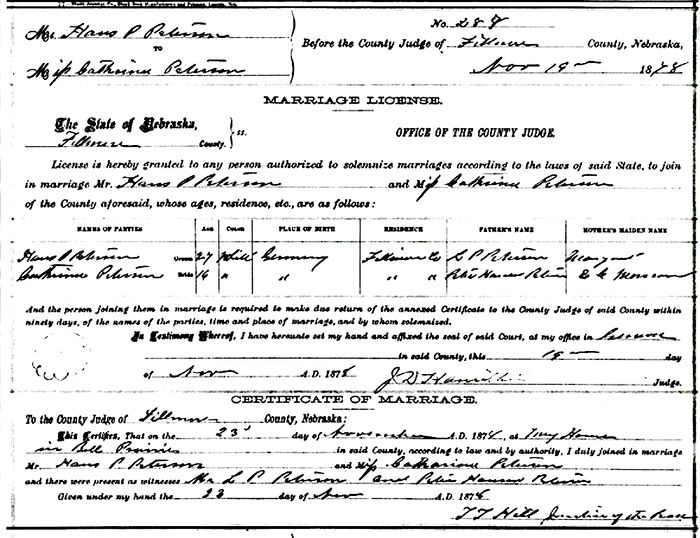 Mr Hans P Peterson
TO
Miss Cathrina Peterson
No. 288
Before the County Judge of Fillmore County, Nebraska,
Nov 19 1878
MARRIAGE LICENSE.
The State of Nebraska,
Fillmore County. } ss.
OFFICE OF THE COUNTY JUDGE.
License is hereby granted to any person authorized to solemnize marriages according to the laws of said State, to join
in marriage Mr. Hans P Peterson and Miss Cathrina Peterson
of the County aforesaid, whose ages, residence, etc., are as follows:
NAMES OF PARTIES AGE COLOR PLACE OF BIRTH RESIDENCE FATHER'S NAME MOTHER'S MAIDEN NAME
Hans P Peterson Groom 27 White Germany Fillmore Co L P Peterson
Cathrina Peterson Bride 16 " " " " Peter Hansen Peterson
And the person joining them in marriage is required to make due return of the annexed Certificate to the County Judge of said County within
ninety days, of the names of the parties, time and place of marriage, and by whom solemnized.
In Testimony Whereof, I have hereunto set my hand and affixed the seal of said Court, at my office in
in said County, this 19 day
of Nov A.D. 1878 J D Hamilton Judge.
CERTIFICATE OF MARRIAGE.
To the County Judge of Fillmore County, Nebraska:
This Certifies, That on the 23 day of November A.D. 1878, at my House
in Bell Prairie in said County, according to law and by authority, I duly joined in marriage
Mr. Hans P Peterson and Miss Catharina Peterson
and there were present as witnesses Mr L P Peterson and Peter Hansen Peterson
Given under my hand the 23 day of Nov A.D. 1878
T T Hill Justice of the Peace